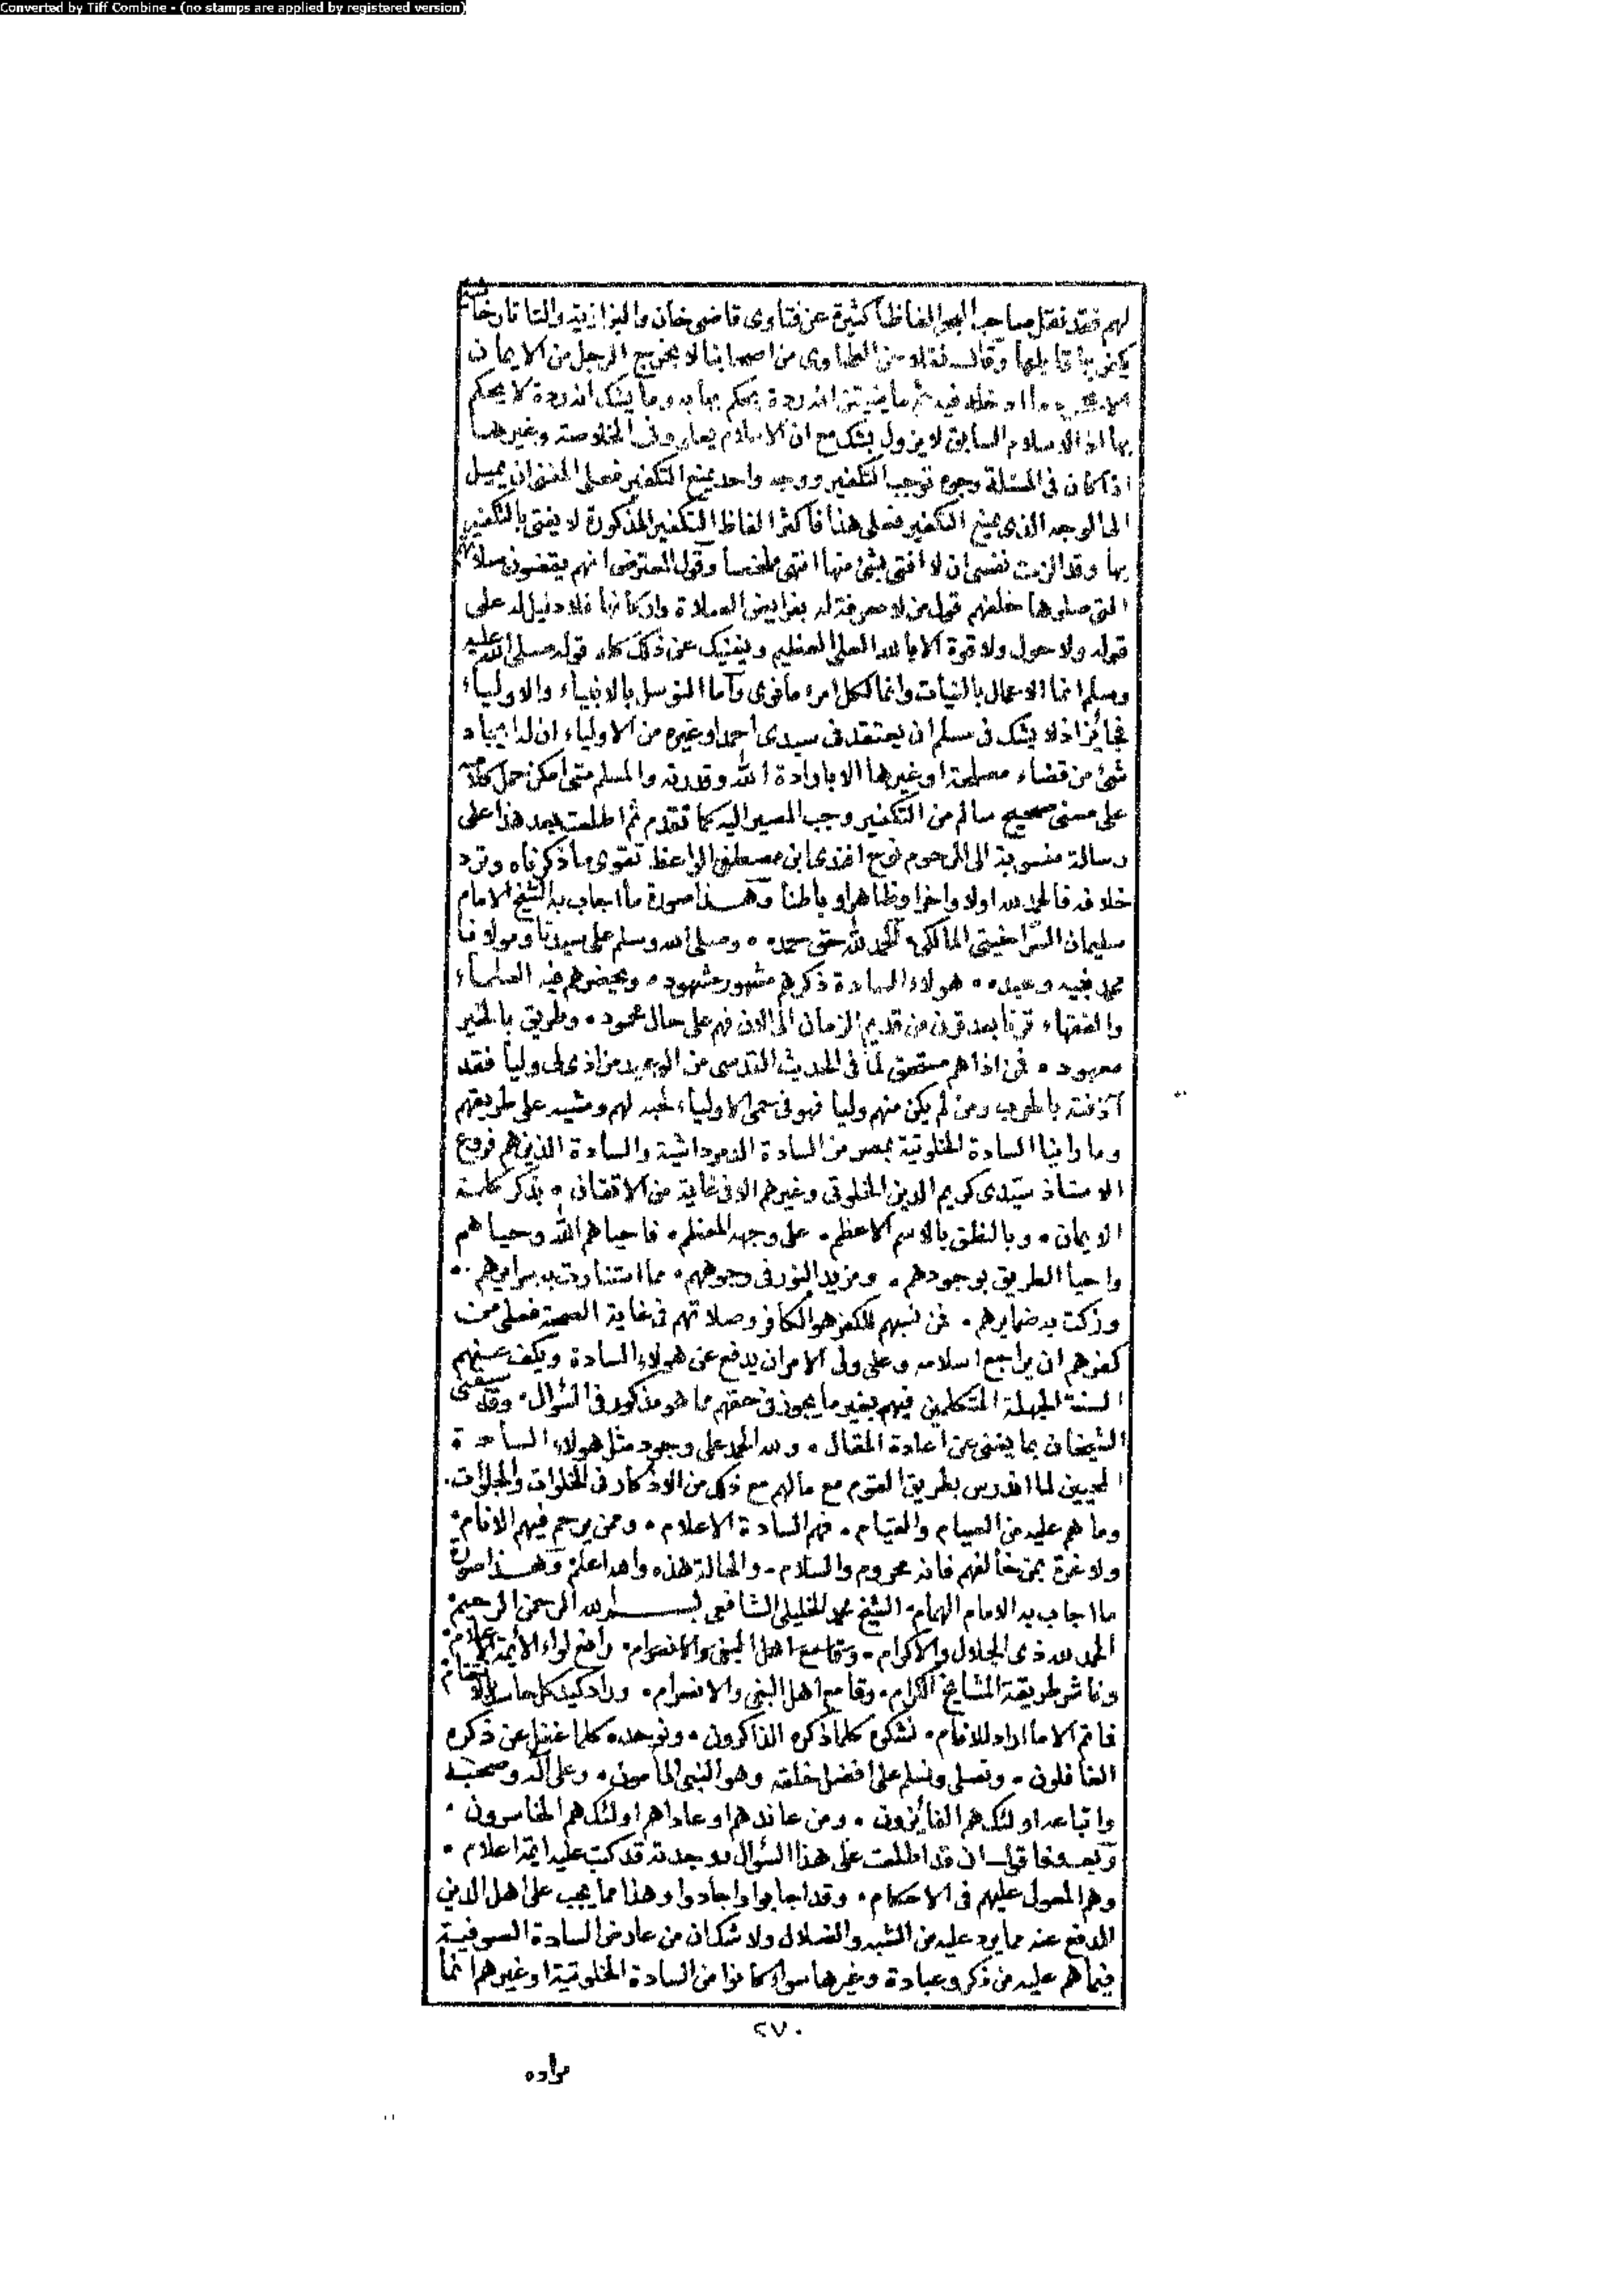 Converted by Tiff Combine - (no stamps are applied by registered version)
لهم فقد نقل صاحب البحر الفاظا كثيرة عن فتاوى قاضى خان والبزازية والتاتارخانية
يكفر بها قايلها وقال نقلا عن الطحاوى من اصحابنا لا يخرج الرجل من الايمان
الا جحود ما ادخله فيه ثم ما يتيقن انه ردة يحكم بها به وما يشك انه ردة لا يحكم
بها اذ الاسلام السابق لا يزول بشك مع ان الاسلام يعلو وفى الخلاصة وغيرها
اذا كان فى المسئلة وجوه توجب التكفير ووجه واحد يمنع التكفير فعلى المفتى ان يميل
الى الوجه الذى يمنع التكفير فعلى هذا فاكثر الفاظ التكفير المذكورة لا يفتى بالتكفير
بها وقد الزمت نفسى ان لا افتى بشئ منها انتهى ملخصا وقول المعترض انهم يقضون صلاتهم
التى صلوها خلفهم قول من لا معرفة له بفرايض الصلاة واركانها فلا دليل له على
قوله ولا حول ولا قوة الا بالله العلى العظيم ويغنيك عن ذلك كله قوله صلى الله عليه
وسلم انما الاعمال بالنيات وانما لكل امرء ما نوى واما التوسل بالانبياء والاولياء
فجائز اذ لا يشك فى مسلم ان يعتقد فى سيدى احمد او غيره من الاولياء ان له ايجاد
شئ من قضاء مصلحة او غيرها الا بارادة الله وقدرته والمسلم متى امكن حمل كلامه
على معنى صحيح سالم من التكفير وجب المصير اليه كما تقدم ثم اطلعت بعد هذا على
رسالة منسوبة الى المرحوم نوح افندى ابن مصطفى الواعظ تقوى ما ذكرناه وترد
خلافه فالحمد لله اولا واخرا وظاهرا وباطنا وهذا صورة ما اجاب به الشيخ الامام
سليمان الشراخيتى المالكى الحمد لله حق حمده • وصلى الله وسلم على سيدنا ومولانا
محمد نبيه وعبده • هولاء السادة ذكرهم مشهور مشهود • ويحضرهم فيه العلماء
والفقهاء قرنا بعد قرن من قديم الزمان الى الان فهم على حال محمود • وطريق بالخير
معهود • فمن اذاهم مستحق لما فى الحديث القدسى من الوعيد من اذى لى وليا فقد
آذنته بالحرب ومن لم يكن منهم وليا فهو فى حمى الاولياء لحبه لهم ومشيه على طريقهم
وما راينا السادة الخلوتية بمصر من السادة الدمرداشية والسادة الذين هم فروع
الاستاذ سيدى كريم الدين الخلوتى وغيرهم الا فى غاية من الاتقان • بذكر كلمة
الايمان • وبالنطق بالاسم الاعظم • على وجهه المعظم • فاحياهم الله وحياهم
واحيا الطريق بوجودهم • ومزيد النور فى وجوههم • مما استنارت به سرايرهم •
وزكت به ضمايرهم • فمن نسبهم للكفر هو الكافر وصلاتهم فى غاية الصحة فعلى من
كفرهم ان يراجع اسلامه وعلى ولى الامر ان يدفع عن هولاء السادة ويكف عنهم
السنة الجهلة المتكلمين فيهم بغير ما يجوز فى حقهم مما هو مذكور فى السؤال • وقد سبقنى
الشيخان بما يغنى عن اعادة المقال • ولله الحمد على وجود مثل هولاء السادة
المحيين لما اندرس بطريق القوم مع مالهم مع ذلك من الاذكار فى الخلوات والجلوات •
وما هم عليه من الصيام والقيام • فهم السادة الاعلام • وممن يرحم فيهم الانام •
ولا عزة بمن خالفهم فانه محروم والسلام • والحالة هذه والله اعلم وهذا صورة
ما اجاب به الامام الهمام الشيخ محمد الخليلى الشافعى بسم الله الرحمن الرحيم
الحمد لله ذى الجلال والاكرام • وقامع اهل البغى والانصرام • رافع لواء الائمة الاعلام •
وناشر طريقة المشايخ الكرام • وقامع اهل البغى والانصرام • وراد كيد كل حاسد
فما تم الا ما اراد للانام • نشكره كلما ذكره الذاكرون • ونوحده كلما غفل عن ذكره
الغافلون • ونصلى ونسلم على افضل خلقه وهو النبى المامون • وعلى آله وصحبه
واتباعه اولئك هم الفائزون • ومن عاندهم او عاداهم اولئك هم الخاسرون •
وبعد فاقول ان قد اطلعت على هذا السؤال فوجدته قد كتب عليه ايمة اعلام •
وهم المعول عليهم فى الاحكام • وقد اجابوا واجادوا وهذا مما يجب على اهل الدين
الدفع عنه مما يرد عليه من الشبه والضلال ولا شك ان من عارض السادة الصوفية
فيما هم عليه من ذكر وعبادة وغيرها سواء كانوا من السادة الخلوتية او غيرهم انما
٢٧٠
مراده